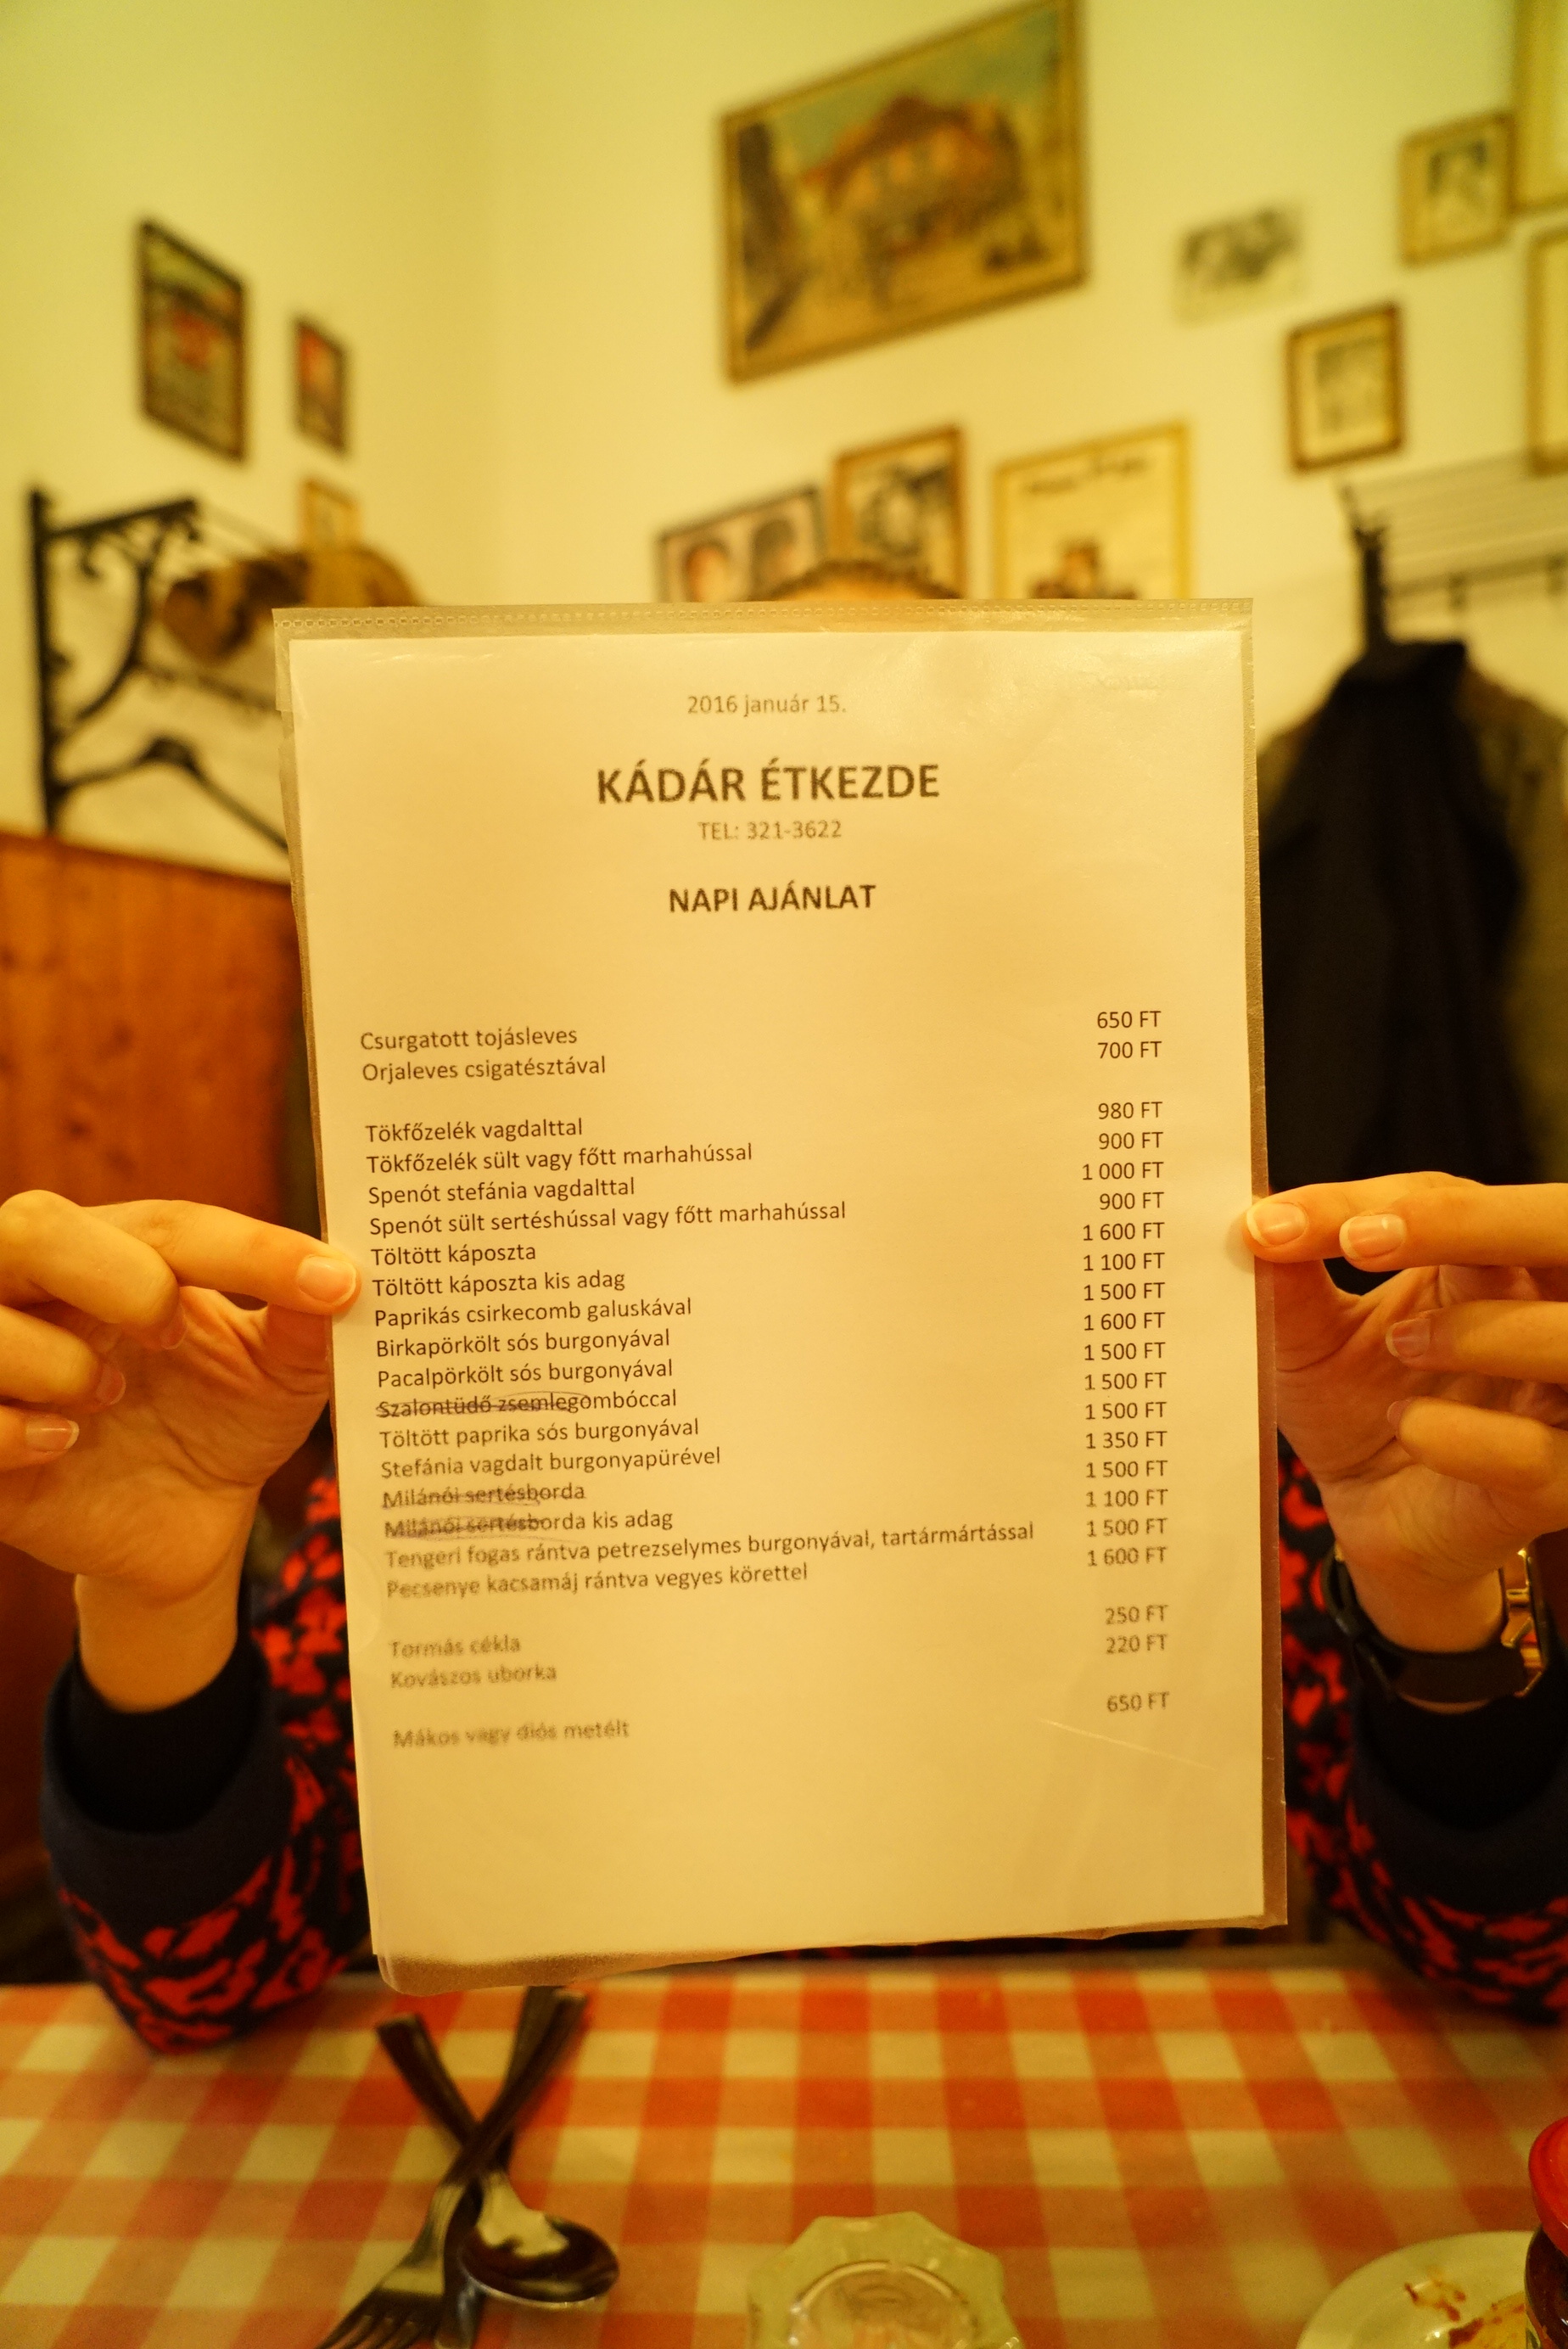 2016 január 15.
KÁDÁR ÉTKEZDE
TEL: 321-3622
NAPI AJÁNLAT
Csurgatott tojásleves 650 FT
Orjaleves csigatésztával 700 FT
Tökfőzelék vagdalttal 980 FT
Tökfőzelék sült vagy főtt marhahússal 900 FT
Spenót stefánia vagdalttal 1 000 FT
Spenót sült sertéshússal vagy főtt marhahússal 900 FT
Töltött káposzta 1 600 FT
Töltött káposzta kis adag 1 100 FT
Paprikás csirkecomb galuskával 1 500 FT
Birkapörkölt sós burgonyával 1 600 FT
Pacalpörkölt sós burgonyával 1 500 FT
Szalontüdő zsemlegombóccal 1 500 FT
Töltött paprika sós burgonyával 1 500 FT
Stefánia vagdalt burgonyapürével 1 350 FT
Milánói sertésborda 1 500 FT
Milánói sertésborda kis adag 1 100 FT
Tengeri fogas rántva petrezselymes burgonyával, tartármártással 1 500 FT
Pecsenye kacsamáj rántva vegyes körettel 1 600 FT
Tormás cékla 250 FT
Kovászos uborka 220 FT
Mákos vagy diós metélt 650 FT